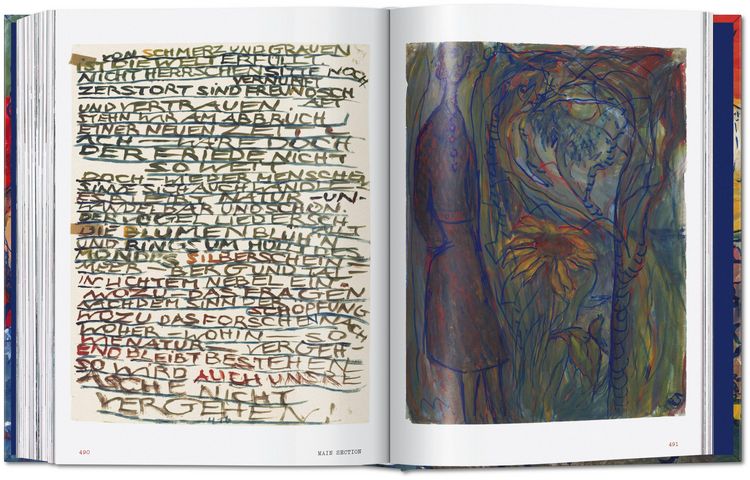 VON SCHMERZ UND GRAUEN
IST DIE WELT ERFÜLLT
NICHT HERRSCHEN SITTE NOCH
ZERSTÖRT SIND FREUNDSCH
UND VERTRAUEN —
STEHN WIR AM ABBRUCH
EINER NEUEN ZEIT!
ACH — WÄRE DOCH
DER FRIEDE NICHT
SO WEIT!
DOCH LIEBER MENSCH
SICH AUCH
NATUR — UN-
UND SCHÖN.
DER VÖGEL
DIE BLUMEN BLÜHN
UND RINGS UM
MONDES SILBERSCHEIN
MEER — BERG UND TAL
IN LICHTEM NEBEL EIN
WOZU DAS FRAGEN
NACH DEM SCHÖPFUNG
WOZU DAS FORSCHEN NACH
WOHER — WOHIN — SO
WIE NATUR — VERGEH
END BLEIBT BESTEHEN
SO WIRD AUCH UNSRE
ASCHE NICHT
VERGEHEN!
490
MAIN SECTION
491